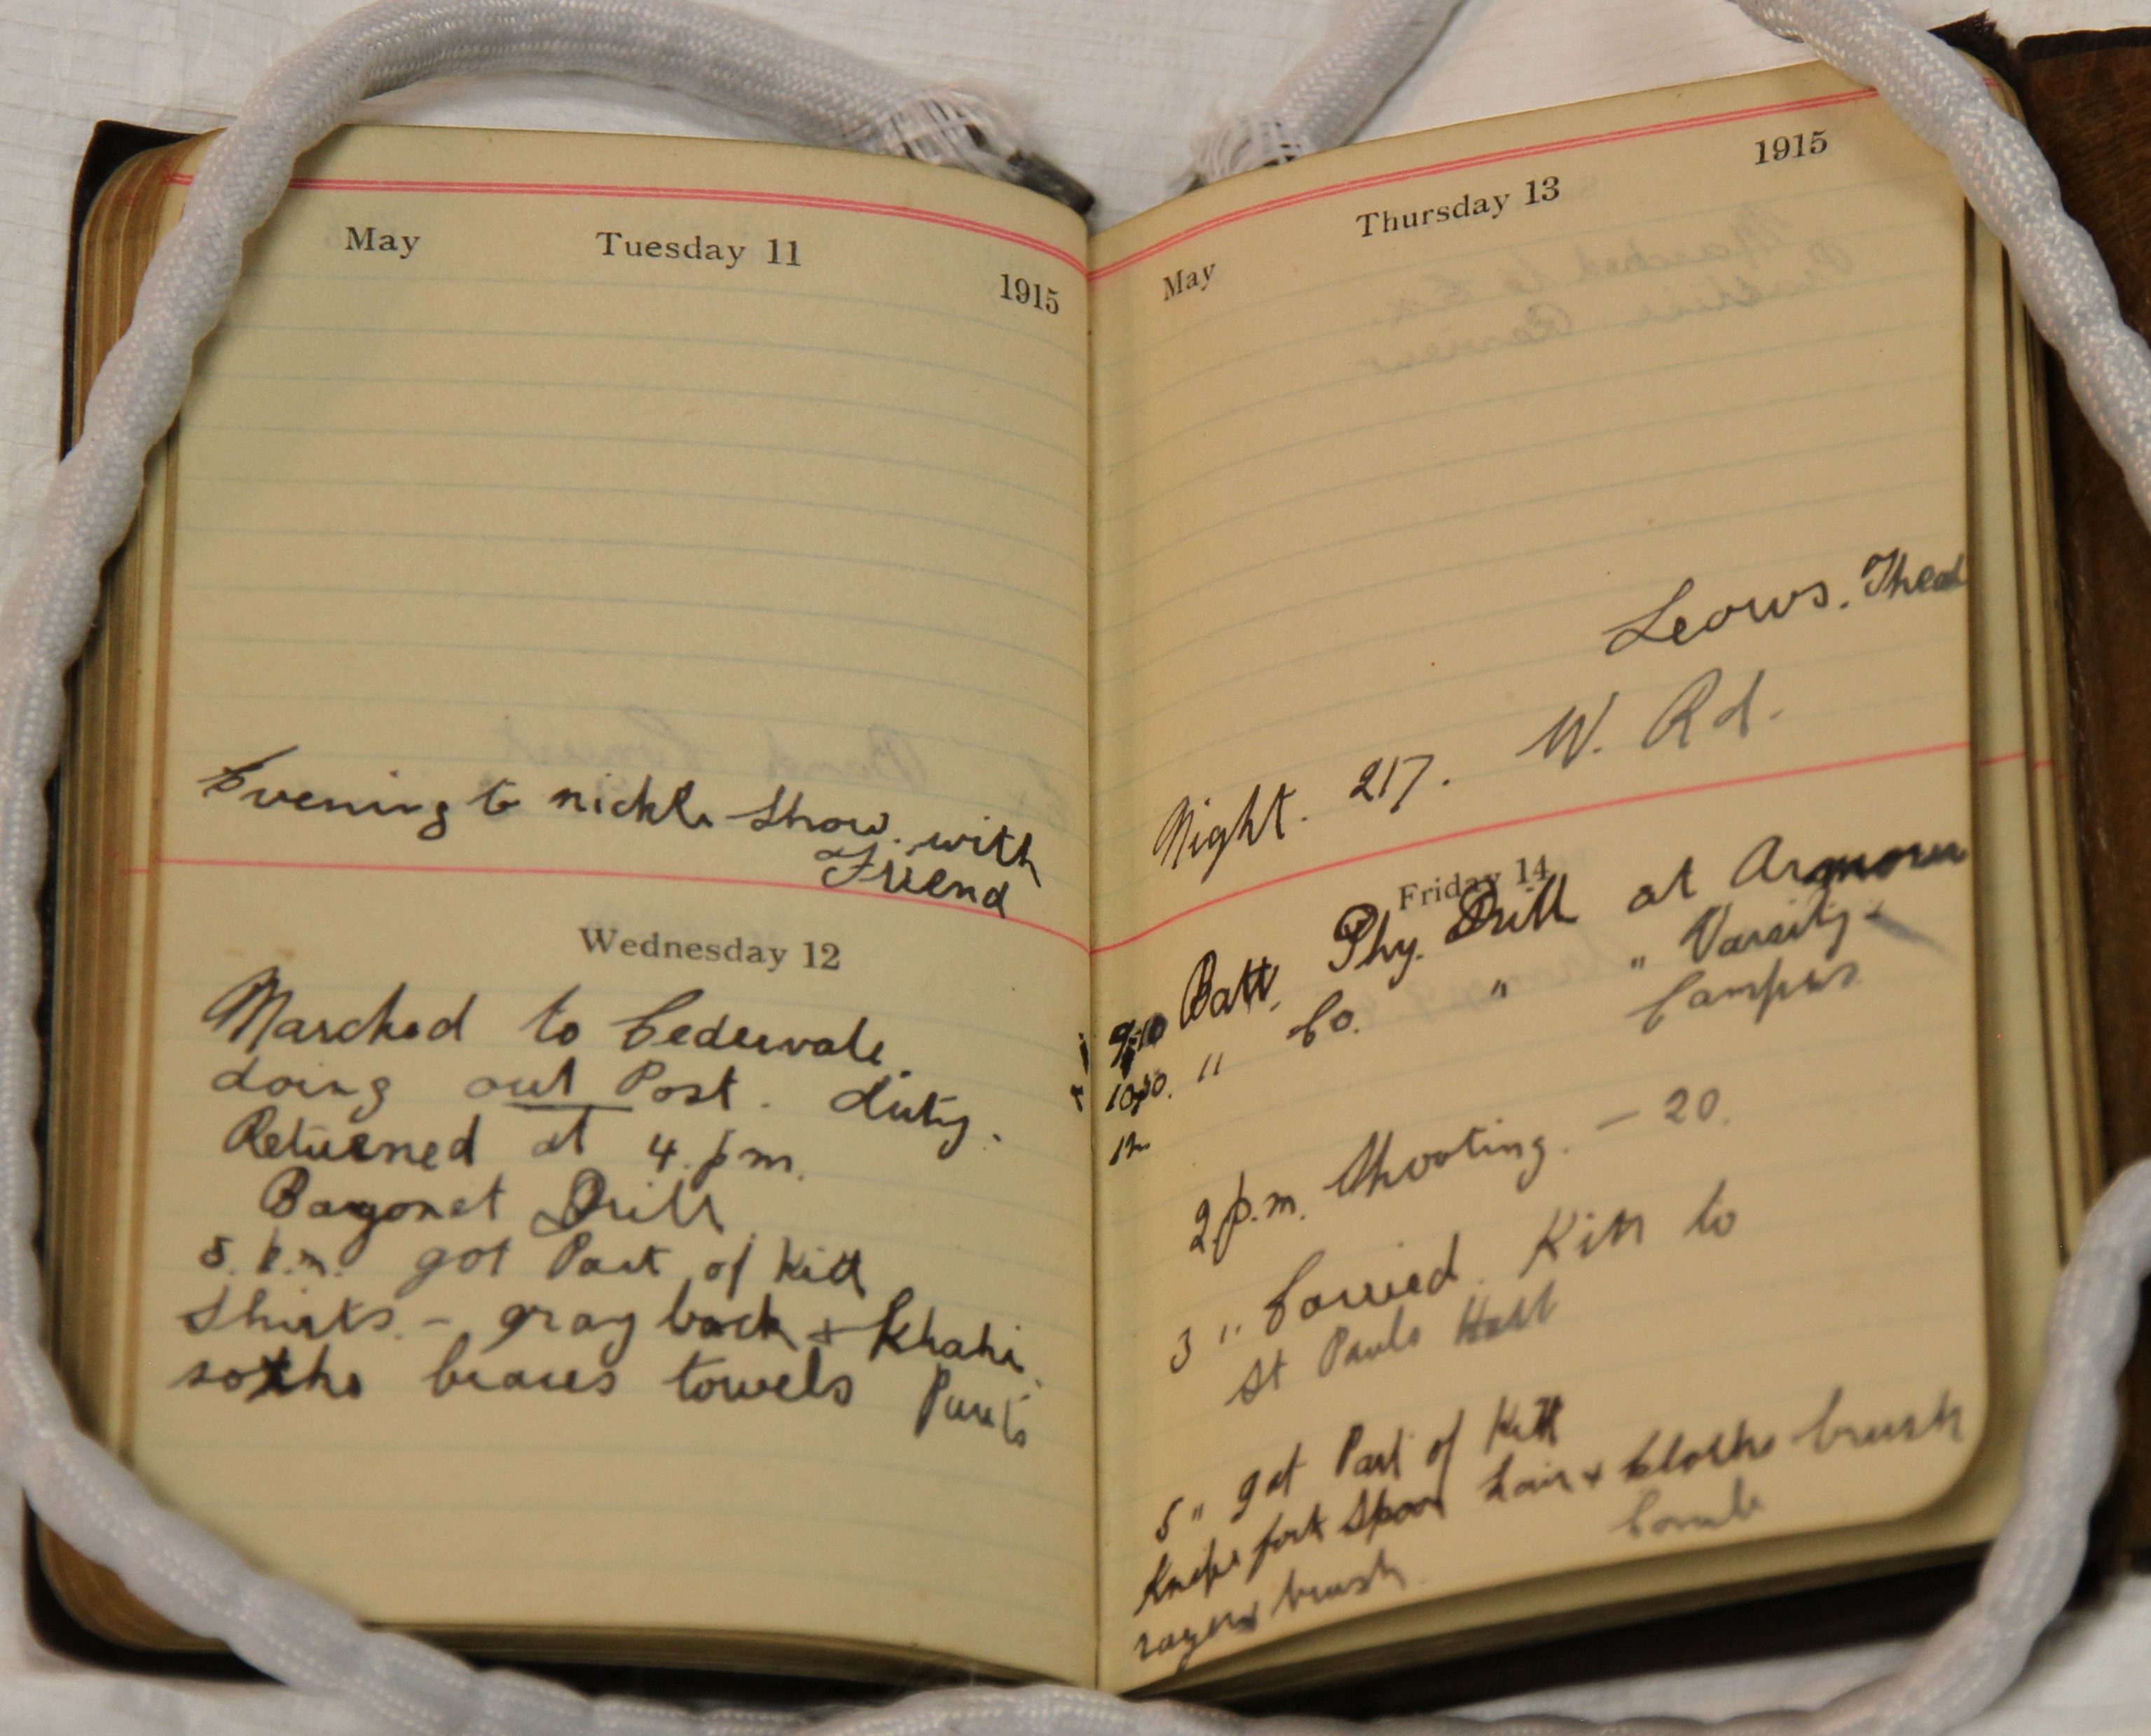 May Tuesday 11 1915
Evening to nickle Show. with
Friend
Wednesday 12
Marched to Cedervale.
doing out Post. duty.
Returned at 4. p.m.
Bayonet Drill
5. p.m. got Part of Kitt
Shirts. - gray back + Khahi.
braces towels Pants
May Thursday 13 1915
Leows. Theat
Night. 217. W. Rd.
Friday 14
Batt. Phy. Drill at Armour
" Co. " " Varsity.
Campus
2 p.m. Shooting. - 20.
3 " Carried. Kitt to
St Pauls Hall
5 " got Part of Kitt
Knife fork Spoon hair + Cloths brush
Comb
razer brush.